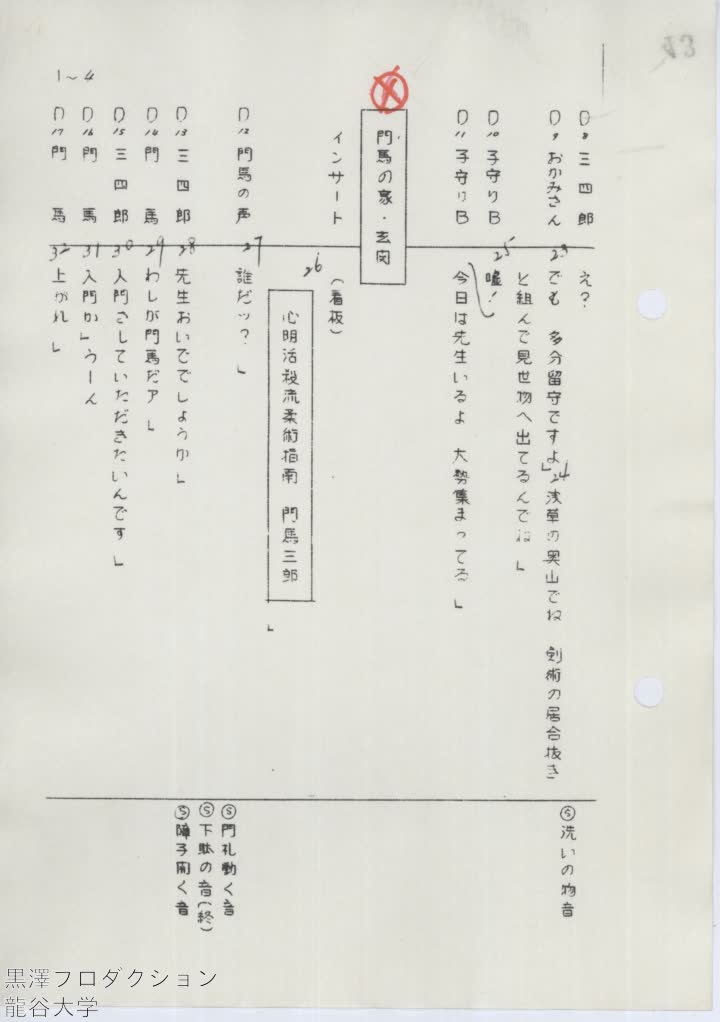 1~4
D8 三四郎 え？
D9 おかみさん 23 でも 多分留守ですよ」24 浅草の奥山でね 剣術の居合抜き
と組んで見世物へ出てるんでね」
D10 子守りB 25 嘘！
D11 子守りB 今日は先生いるよ 大勢集まってる」
門馬の家・玄関
インサート (看板)
26 心明活殺流柔術指南 門馬三郎
」
D12 門馬の声 27 誰だッ？」
D13 三四郎 28 先生おいででしょうか」
D14 門馬 29 わしが門馬だア」
D15 三四郎 30 入門さしていただきたいんです」
D16 門馬 31 入門か」うーん
D17 門馬 32 上がれ」
Ⓢ洗いの物音
Ⓢ門札動く音
Ⓢ下駄の音(終)
Ⓢ障子開く音
黒澤プロダクション
龍谷大学